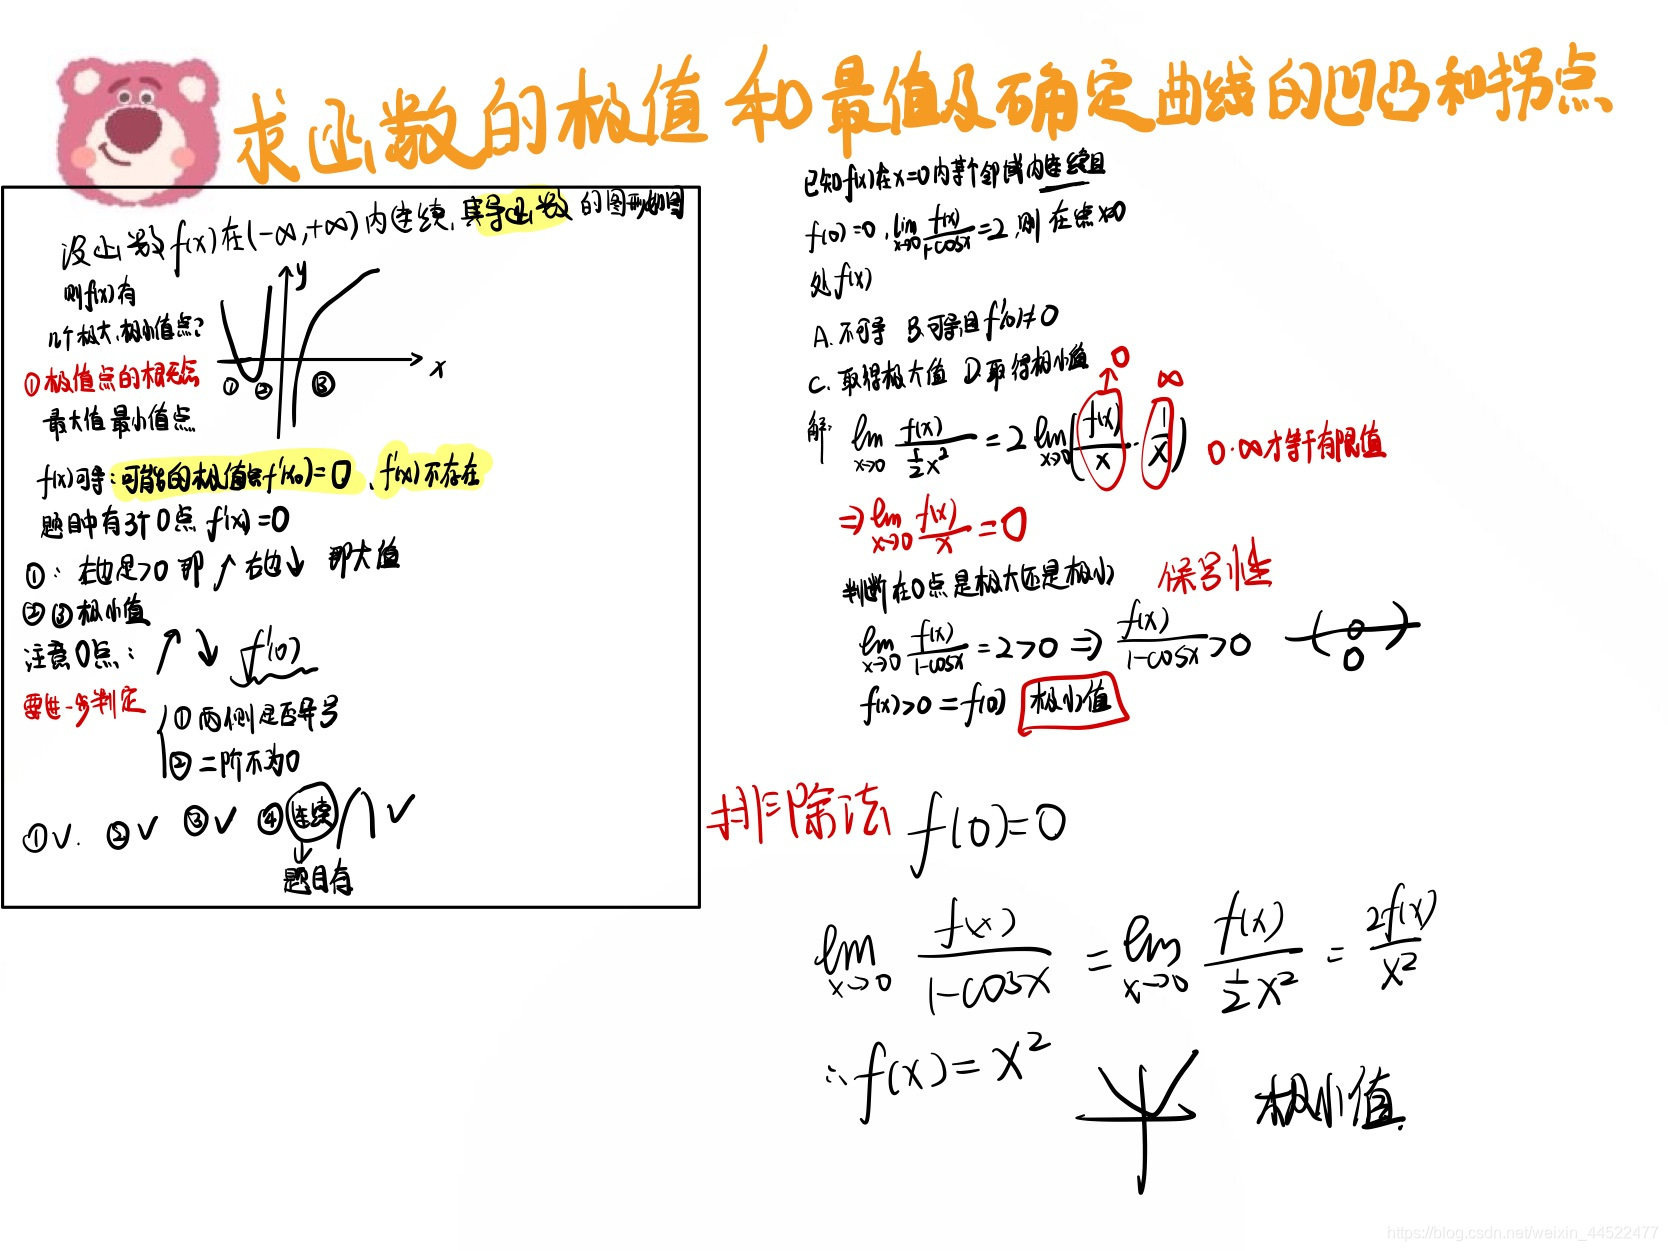 求函数的极值和最值及确定曲线的凹凸和拐点
设函数f(x)在(-∞,+∞)内连续,其导函数的图形如图
则f(x)有
几个极大、极小值点?
y
x
① ② ③
①极值点的概念
最大值最小值点
f(x)可导:可能的极值点f'(x₀)=0、f'(x)不存在
题目中有3个0点 f'(x)=0
①:左边是>0 即↗右边↓ 即大值
②③极小值
注意0点: ↗ ↘ f'(0)
要进一步判定
①两侧是否异号
②二阶不为0
①✓. ②✓ ③✓ ④连续 ✓
题目有
已知f(x)在x=0内某个邻域内连续且
f(0)=0, lim x→0 f(x)/(1-cosx)=2,则在点x=0
处f(x)
A. 不可导 B.可导且f'(0)≠0
C. 取得极大值 D.取得极小值
0 ∞
解: lim x→0 f(x)/(½x²) = 2 lim x→0 (f(x)/x · 1/x) 0·∞才等于有限值
⇒ lim x→0 f(x)/x = 0
判断在0点是极大还是极小 保号性
lim x→0 f(x)/(1-cosx) = 2>0 ⇒ f(x)/(1-cosx) >0 ( 0 )
0
f(x)>0=f(0) 极小值
排除法 f(0)=0
lim x→0 f(x)/(1-cosx) = lim x→0 f(x)/(½x²) = 2f(x)/x²
∴f(x)=x² 极小值.
https://blog.csdn.net/weixin_44522477